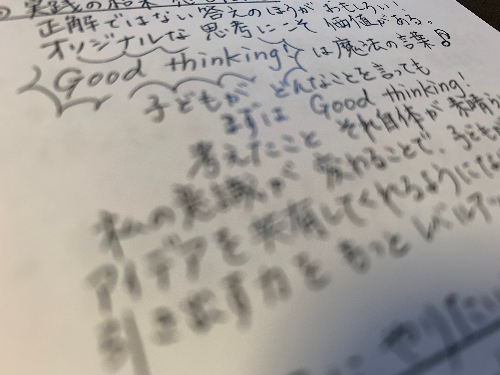 実践の結果
正解ではない答えのほうがおもしろい!
オリジナルな思考にこそ価値がある。
Good thinking! は魔法の言葉♪
子どもが どんなことを言っても
まずは Good thinking!
考えたこと それ自体が素晴らし
私の意識が 変わることで、子ども
アイデアを共有してくれるようにな
引き出す力をもっとレベルア
やりたい